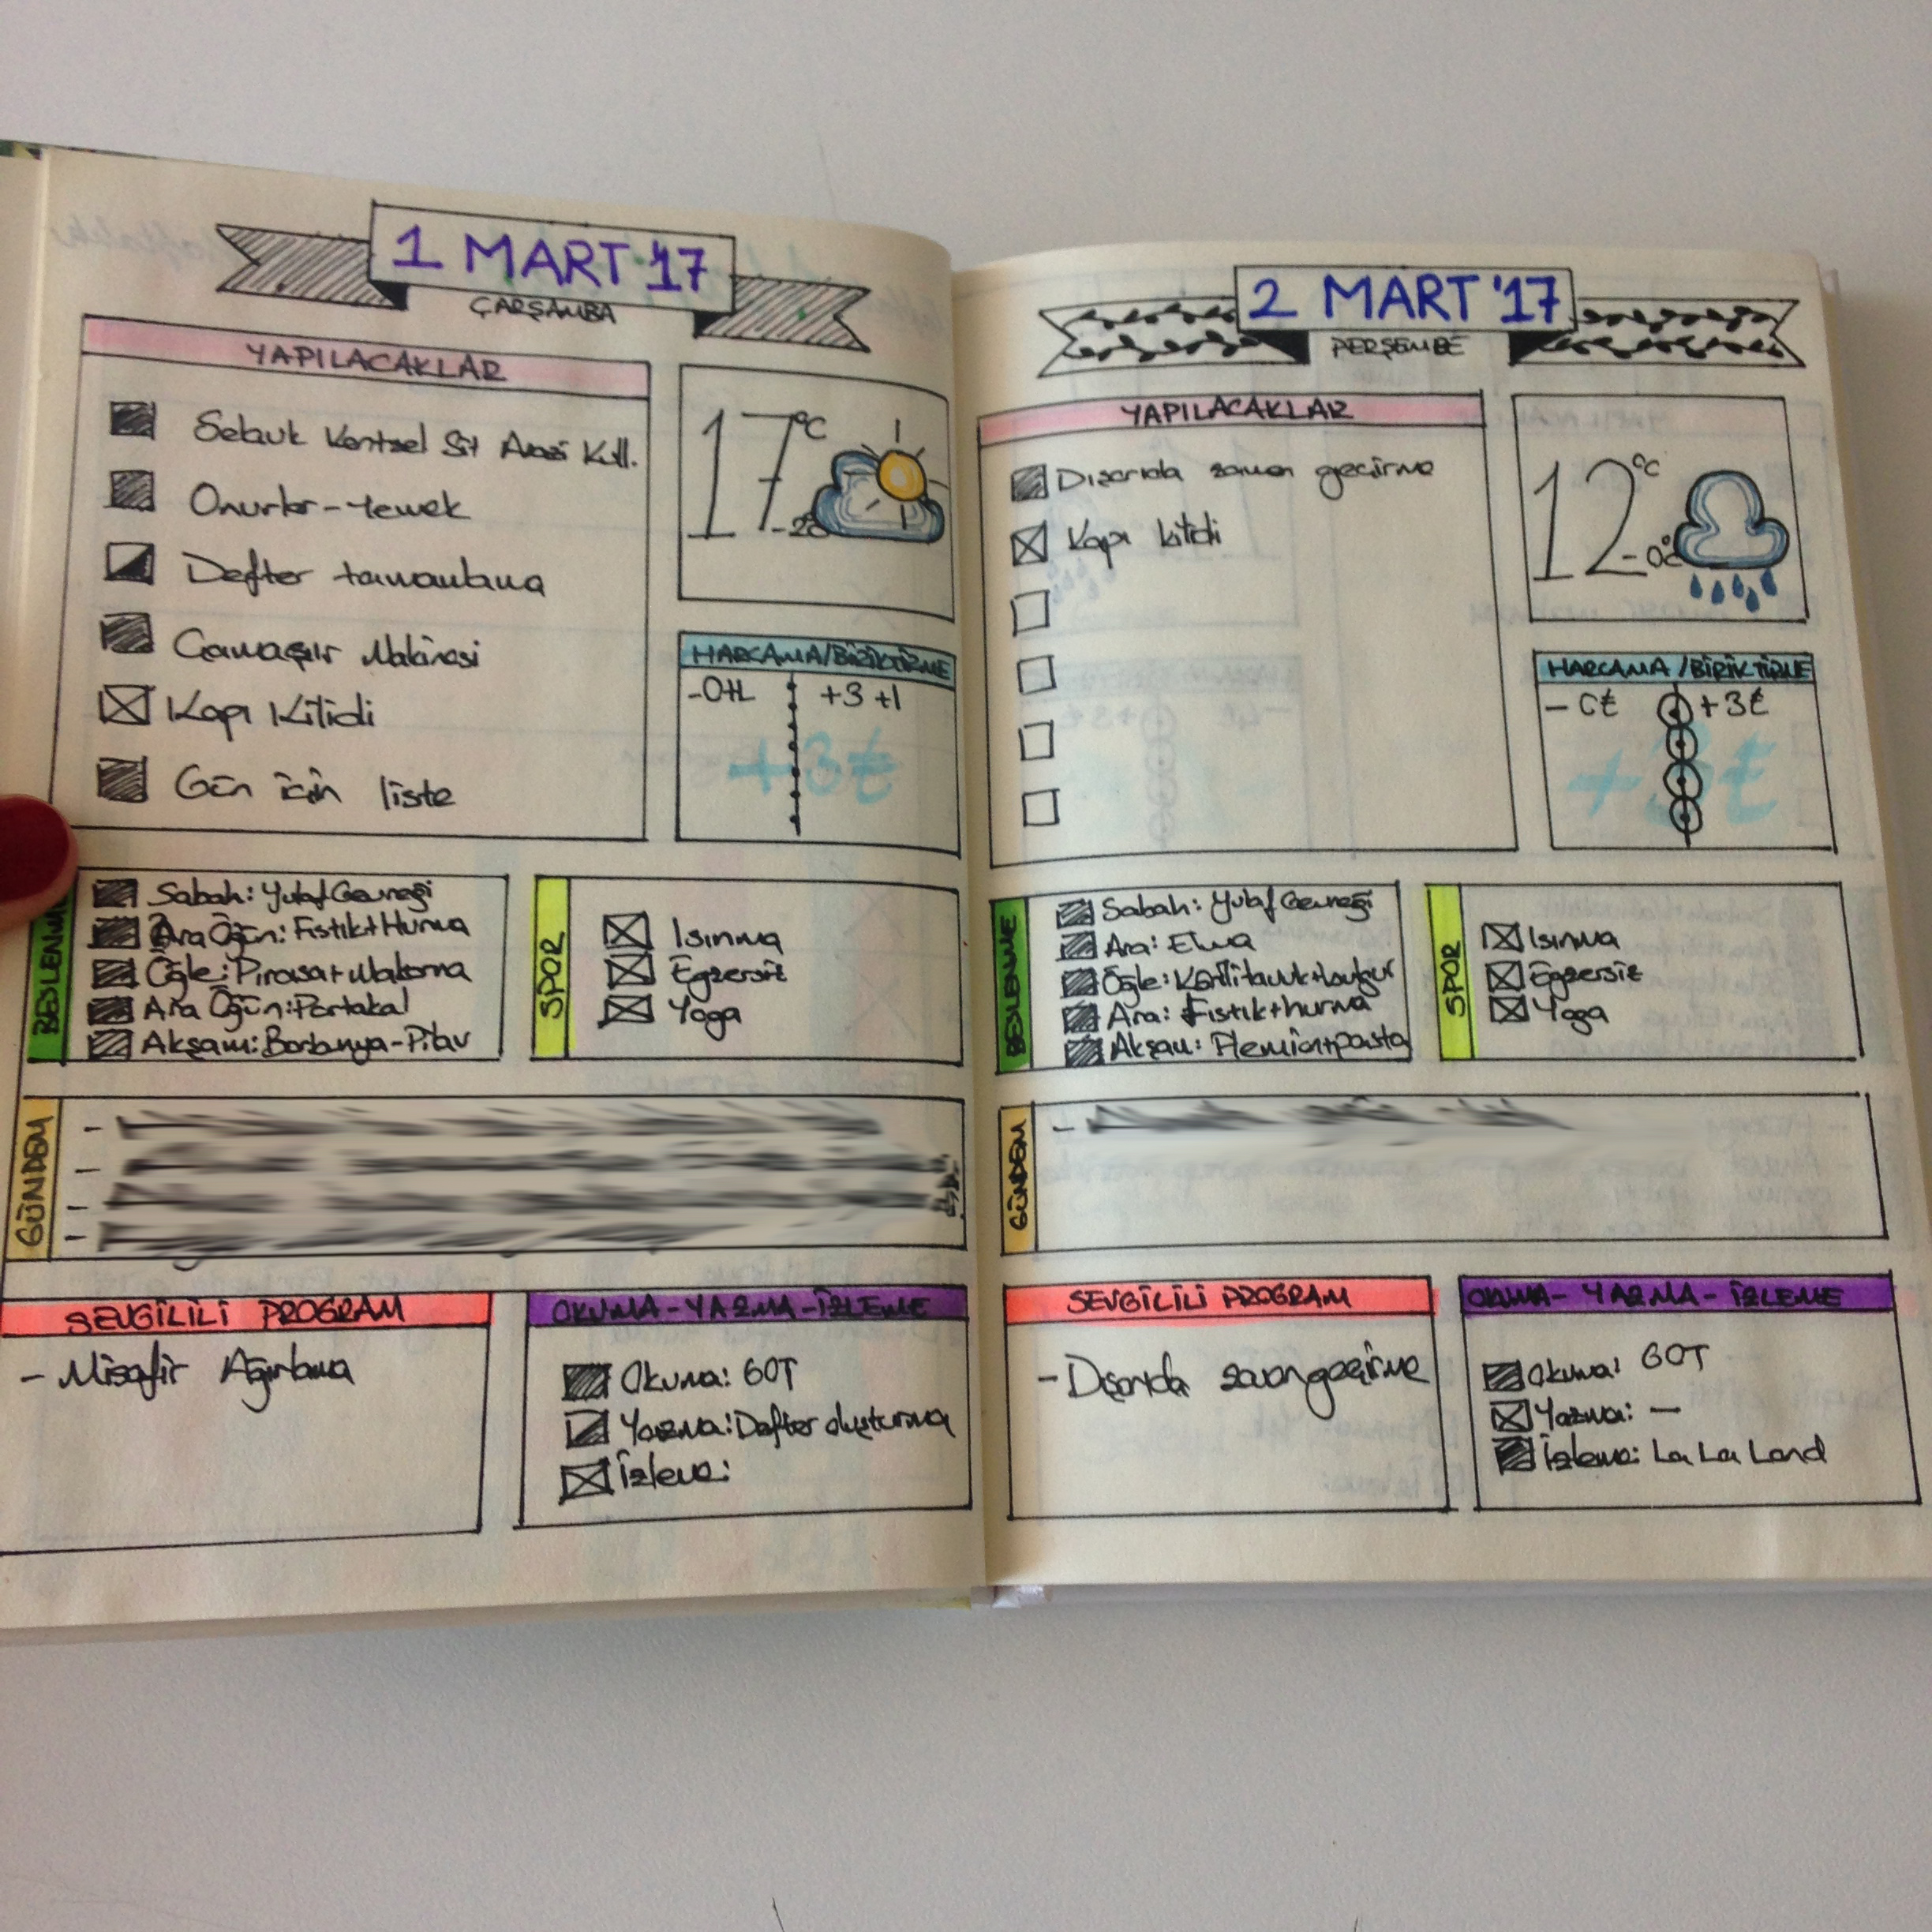 1 MART '17
ÇARŞAMBA
YAPILACAKLAR
Selçuk Kentsel Sit Arazi Kull.
Onurlar-Yemek
Defter tamamlama
Çamaşır Makinası
Kapı Kilidi
Gün için liste
17°C
-2°
HARCAMA/BİRİKTİRME
-0TL +3 +1
+3₺
BESLENME
Sabah: Yulaf Gevreği
Ara Öğün: Fıstık+Hurma
Öğle: Pırasa+Makarna
Ara Öğün: Portakal
Akşam: Barbunya-Pilav
SPOR
Isınma
Egzersiz
Yoga
GÜNDEM
SEVGİLİLİ PROGRAM
- Misafir Ağırlama
OKUMA-YAZMA-İZLEME
Okuma: GOT
Yazma: Defter oluşturma
İzleme:
2 MART '17
PERŞEMBE
YAPILACAKLAR
Dışarıda zaman geçirme
Kapı kilidi
12°C
-0°
HARCAMA/BİRİKTİRME
- 0₺ +3₺
+3₺
BESLENME
Sabah: Yulaf Gevreği
Ara: Elma
Öğle: Körili tavuk+bulgur
Ara: Fıstık+hurma
Akşam: pasta
SPOR
Isınma
Egzersiz
Yoga
GÜNDEM
SEVGİLİLİ PROGRAM
- Dışarıda zaman geçirme
OKUMA-YAZMA-İZLEME
Okuma: GOT
Yazma: —
İzleme: La La Land